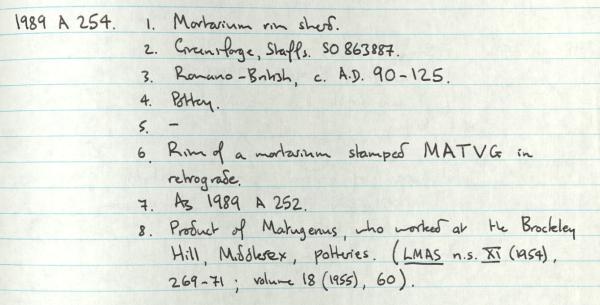 1989 A 254. 1. Mortarium rim sherd.
2. Greensforge, Staffs. SO 863887.
3. Romano-British, c. A.D. 90-125.
4. Pottery.
5. -
6. Rim of a mortarium stamped MATVG in
retrograde.
7. As 1989 A 252.
8. Product of Matugenus, who worked at the Brockley
Hill, Middlesex, potteries. (LMAS n.s. XI (1954),
269-71; volume 18 (1955), 60).